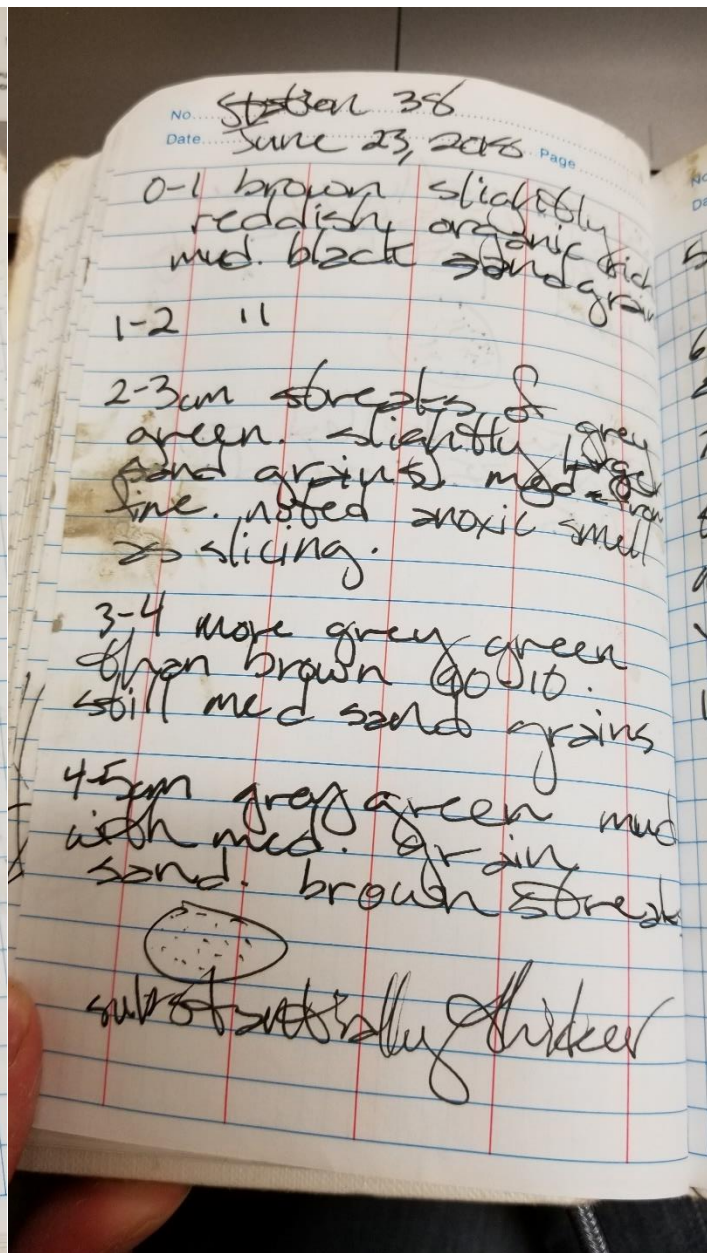 No. Station 38
Date June 23, 2018 Page
0-1 brown slightly
reddish, organic rich
mud. black sand grain
1-2 "
2-3cm streaks of grey
green. slightly larger
sand grains. med-
fine. noted anoxic smell
as slicing.
3-4 more grey green
than brown 90-10.
still med sand grains
4-5cm grey green mud
with med. grain
sand. brown streak
substantially thicker